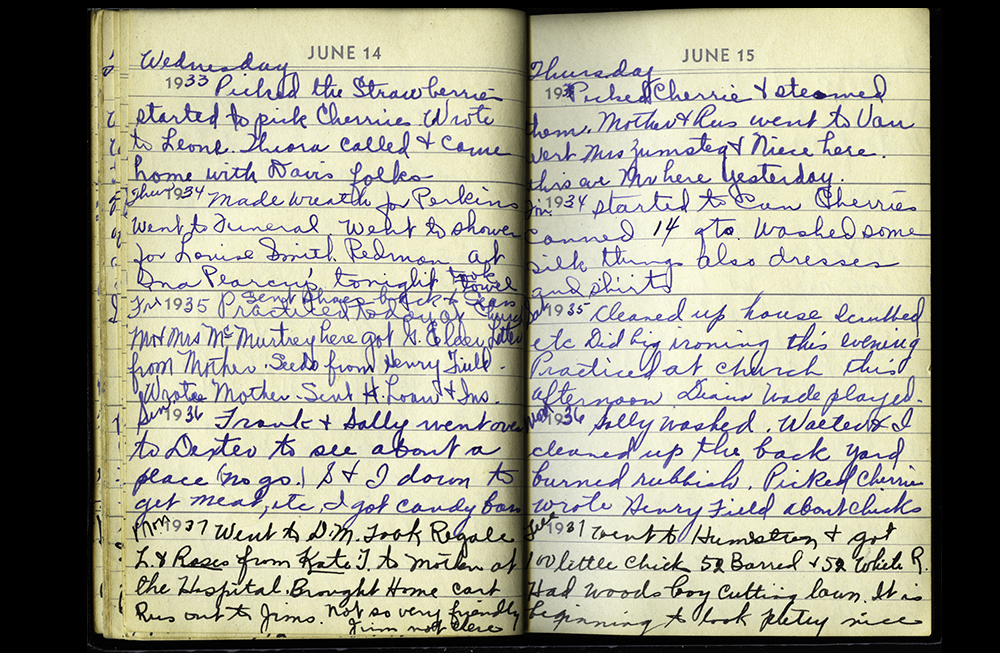 JUNE 14
Wednesday
1933 Picked the Strawberries
started to pick Cherries. Wrote
to Leona. Theora called & Came
home with Davis folks
Thur 1934 Made wreath for Perkins
Went to Funeral. Went to shower
for Louise Smith Redman at
Ina Pearcy's tonight took towel
Sent Shoes back to Sears
Fri 1935 Practiced today at Church
Mr & Mrs McMurtrey here got G. Elder Letter
from Mother. Seeds from Henry Field.
Wrote Mother. Sent H. Loan & Ins.
Sun 1936 Frank & Sally went over
to Dexter to see about a
place (no go.) S & I down to
get meat, etc. I got candy bars
Mon 1937 Went to D.M. Took Regale
L. & Roses from Kate T. to Mother at
the Hospital. Brought Home cart
Rus out to Jims. Not so very friendly
Jim not there
JUNE 15
Thursday
193 Picked Cherrie & steamed
them. Mother & Rus went to Van
Wert Mrs Zumsteg & Niece here.
this eve Mr here yesterday.
1934 started to Can Cherries
Canned 14 qts. Washed some
silk things also dresses
and shirts
Sat 1935 Cleaned up house Scrubbed
etc Did big ironing this evening
Practiced at church this
afternoon Diana Wade played.
Mon 1936 Sally washed. Walter & I
cleaned up the back yard
burned rubbish. Picked Cherrie
wrote Henry Field about chicks
Tues 1937 Went to Humeston & got
100 little chick 52 Barred & 52 White R.
Had woods boy cutting lawn. It is
beginning to look pretty nice